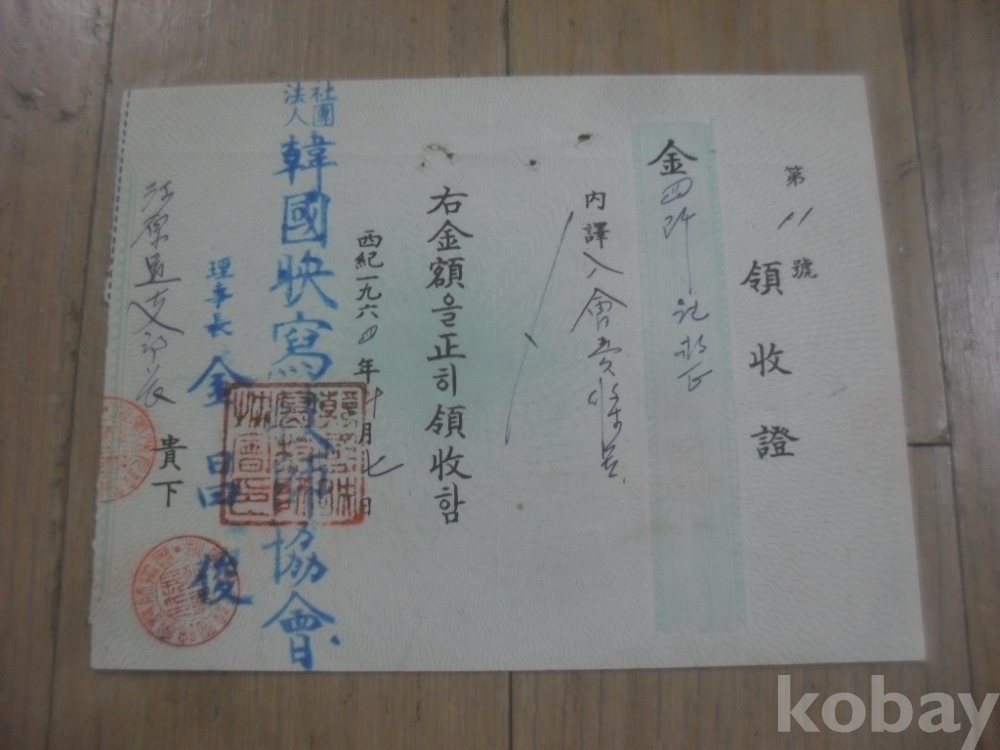 第 11 號
領收證
金四阡
內譯 入會
右金額을正히領收함
西紀一九六四年十月七日
社團法人
韓國映寫技師協會
理事長 金昌俊
江原道支部長
貴下
kobay